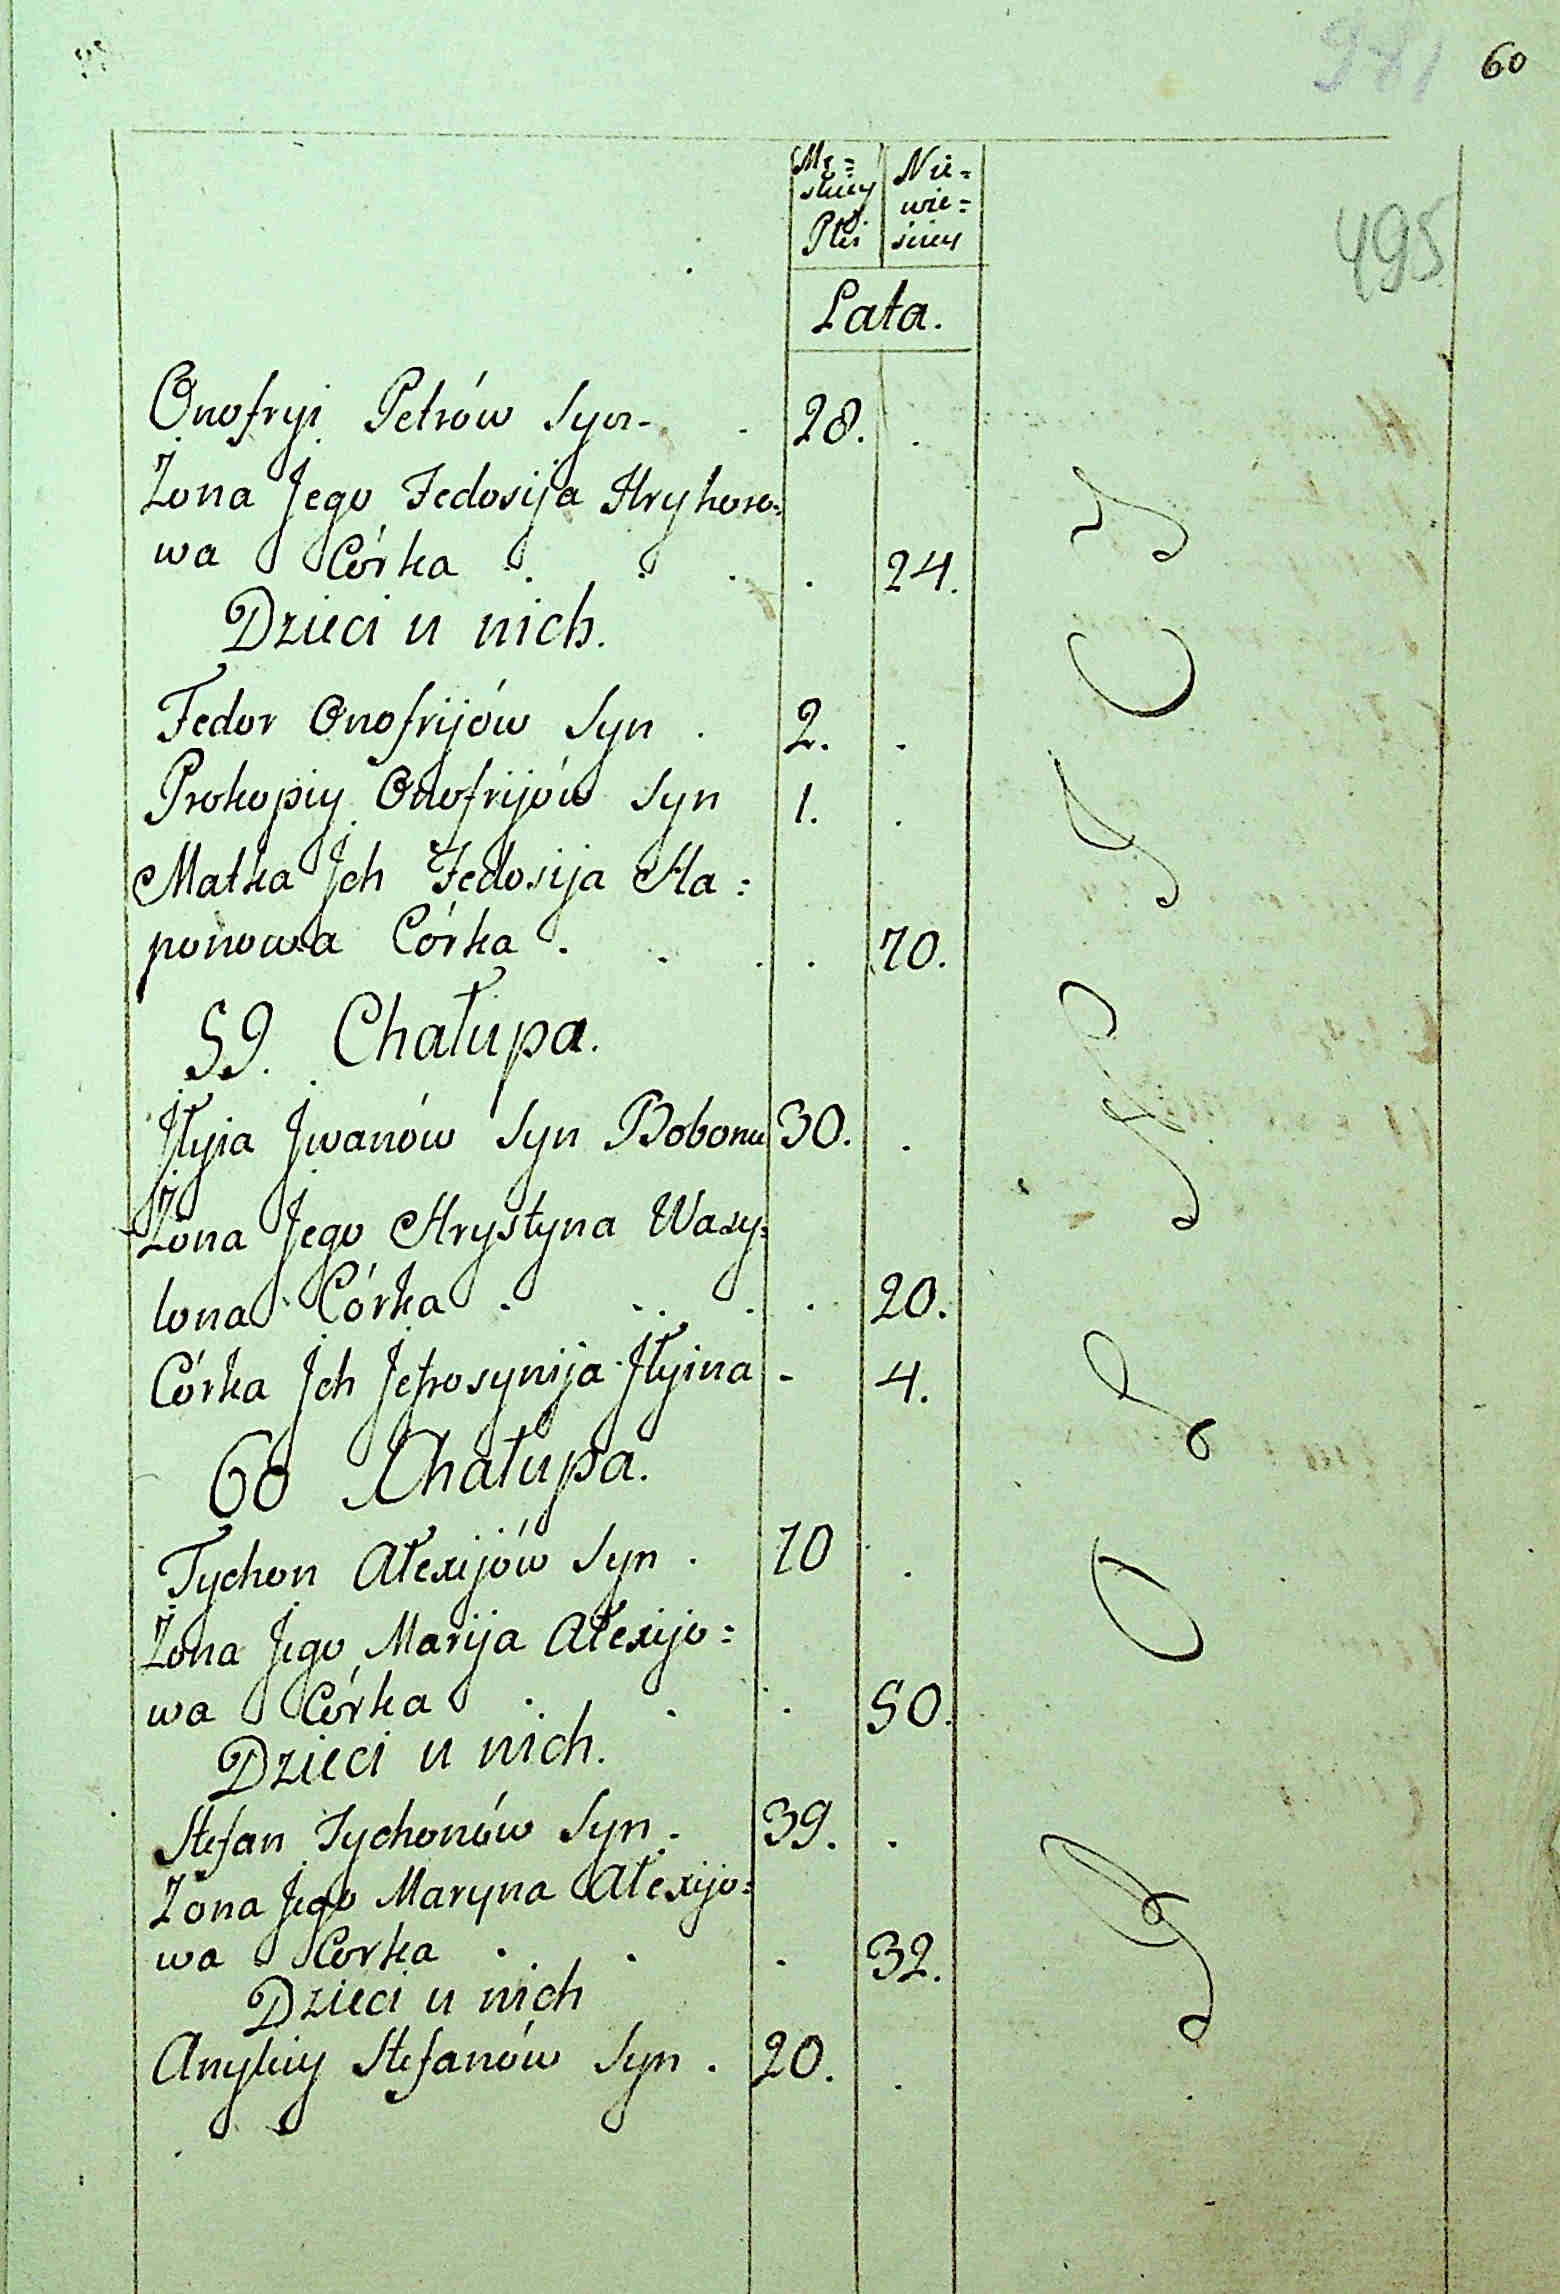 981 60
495
Mę=
skiey
Płci
Nie=
wie=
ściey
Lata.
Onofryi Petrów Syn - . 28. .
Żona Jego Fedosija Hryhoro=
wa Córka . . . . 24.
Dzieci u nich.
Fedor Onofrijów Syn . 2. .
Prokopiy Onofrijów Syn 1. .
Matka Jch Fedosija Ha=
ponowa Córka . . . . 70.
59. Chałupa.
Jłyia Jwanów Syn Bobonu 30. .
Żona Jego Hrystyna Wasy=
lona Córka . . . . 20.
Córka Jch Jefrosynija Jłyina - 4.
60 Chałupa.
Tychon Ałexijów Syn . 70 .
Żona Jego Marija Ałexijo=
wa Córka . . . 50.
Dzieci u nich.
Stefan Tychonów Syn . 39. .
Żona Jego Maryna Ałexijo=
wa Córka . . . 32.
Dzieci u nich
Anykiy Stefanów Syn . 20. .